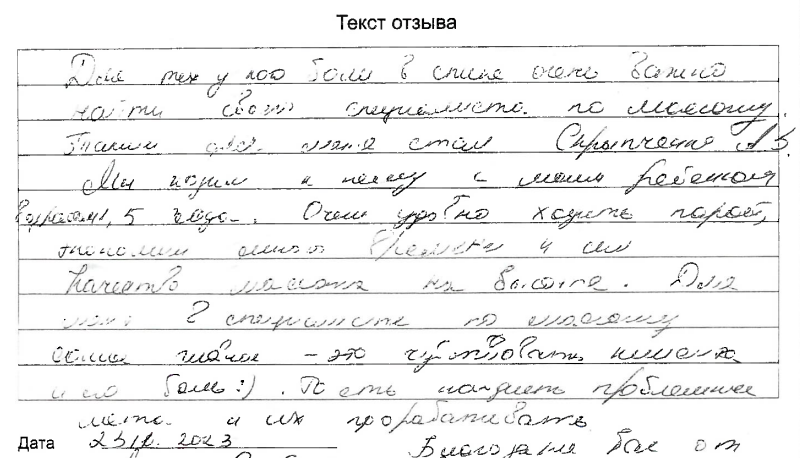 Текст отзыва
Для тех у кого боли в спине очень важно
найти своего специалиста по массажу.
Таким для меня стал Скрыпченко А.В.
Мы ходим к нему с моим ребенком
возрастом, 5 года. Очень удобно ходить парой,
экономим много времени и сил
Качество массажа на высоте. Для
меня в специалисте по массажу
самое главное - это чувствовать клиента
и его боль :). То есть находить проблемные
места и их прорабатывать
Дата 2023 Благодарю Вас от